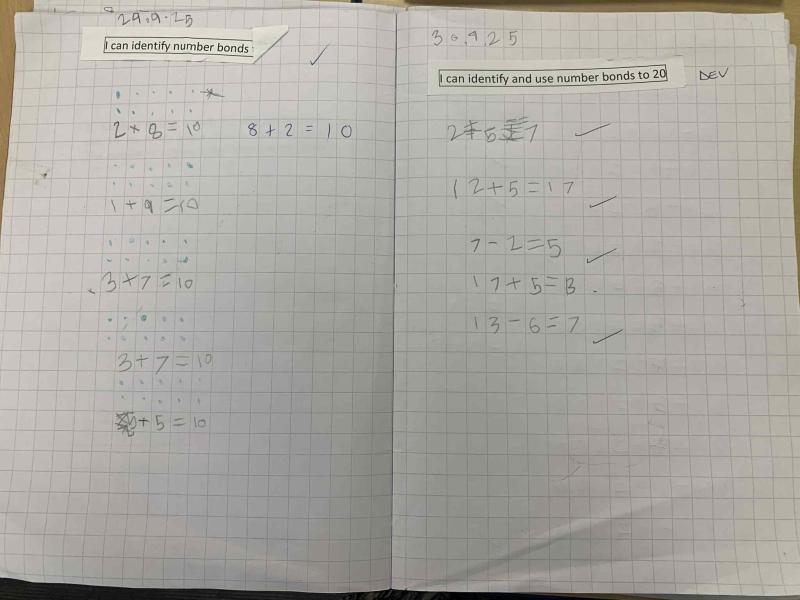 29.9.25
I can identify number bonds
2 + 8 = 10 8 + 2 = 10
1 + 9 = 10
3 + 7 = 10
3 + 7 = 10
+ 5 = 10
30.9.25
I can identify and use number bonds to 20 DEV
2 + 5 = 7
12 + 5 = 17
7 - 2 = 5
17 + 5 = B
13 - 6 = 7